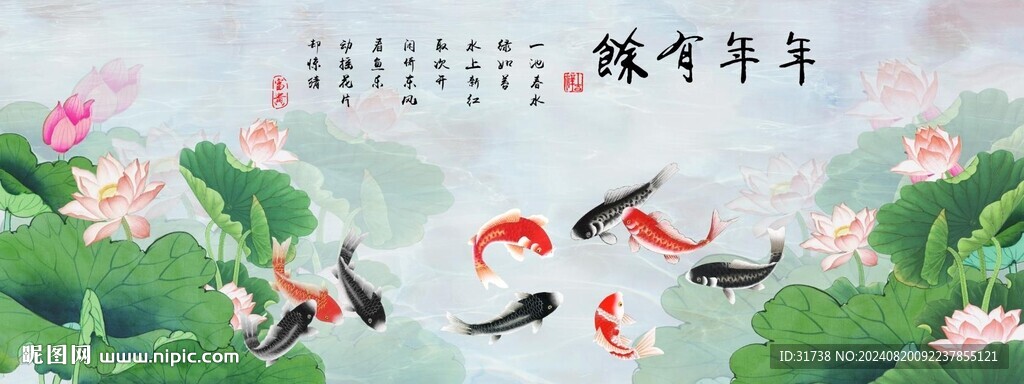 年年有餘
一池春水
绿如苔
水上新红
取次开
闲倚东风
看鱼乐
动摇花片
却惊猜
昵图网 www.nipic.com
ID:31738 NO:20240820092237855121